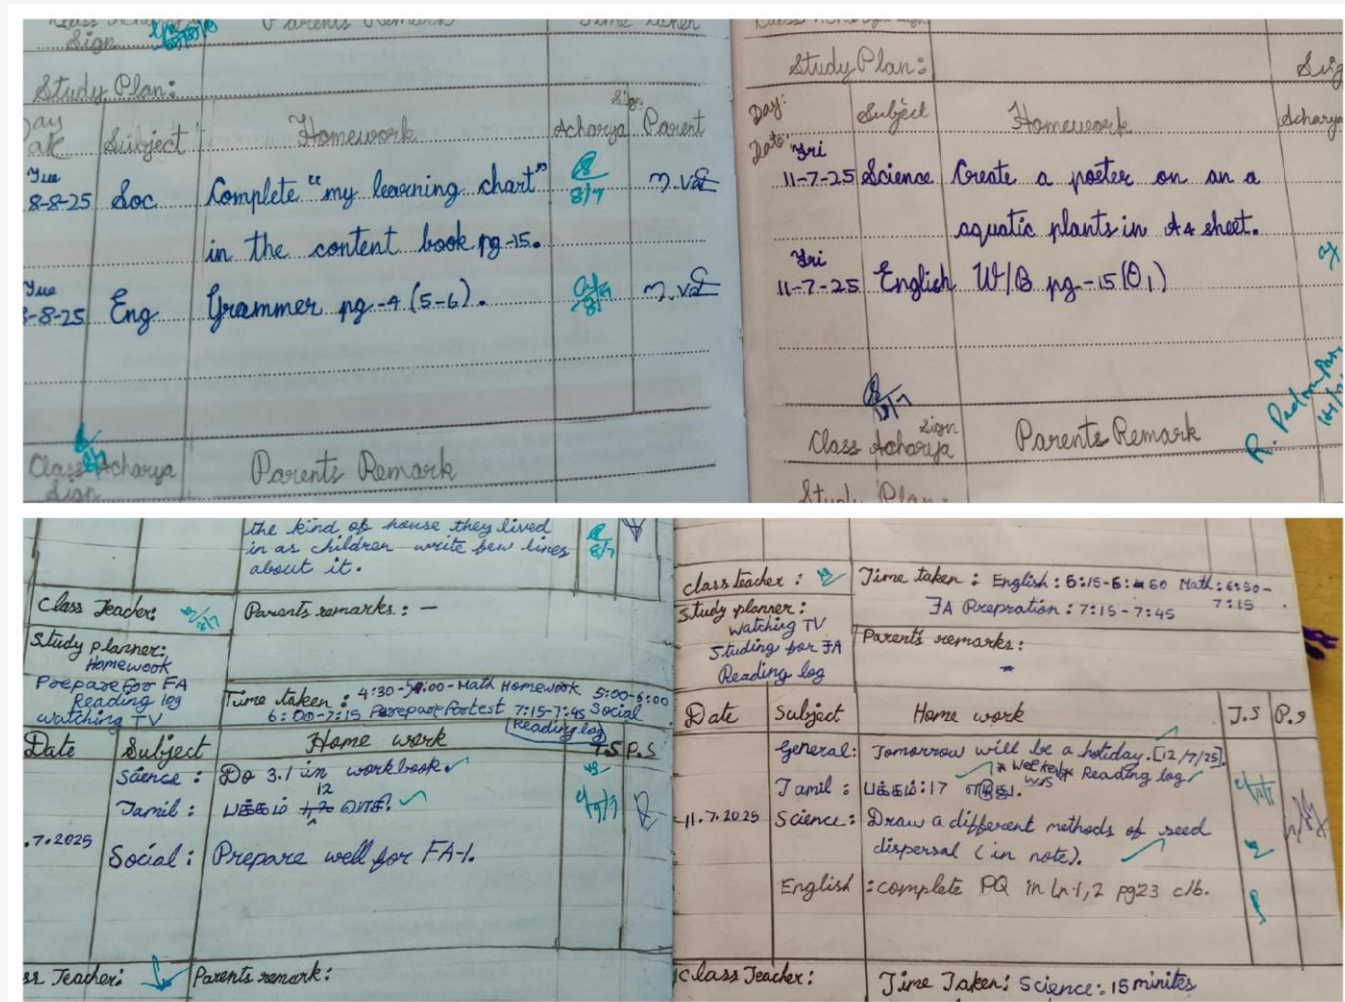 Sign
Parents Remark
Time taken
Study Plan:
Subject
Homework
Sign
Acharya
Parent
Tue
8-8-25
Soc
Complete "my learning chart"
in the content book pg-15.
8/7
Tue
8-8-25
Eng
Grammer pg-4 (5-6).
8/7
Class Acharya
Sign
Parents Remark
Study Plan:
Day:
Date:
Subject
Homework
Acharya
Fri
11-7-25
Science
Create a poster on an a
aquatic plants in A4 sheet.
Fri
11-7-25
English
W/B pg-15(Q1)
Sign
Class Acharya
Parents Remark
Study Plan:
the kind of house they lived
in as children write few lines
about it.
8/7
Class Teacher:
8/7
Parents remarks: -
Study planner:
Homewook
Prepare for FA
Reading log
watching TV
Time taken: 4:30-5:00-Math Homework 5:00-6:00
6:00-7:15 7:15-7:45 Social
Reading log
Date
Subject
Home work
T.S
P.S
Science:
Do 3.1 in workbook.
Tamil:
பக்கம் 12
.7.2025
Social:
Prepare well for FA-1.
ss Teacher:
Parents remark:
class teacher:
Time taken: English: Math: 6:50-
7:15
FA Prepration: 7:15-7:45
Study planner:
Watching TV
Studing for FA
Reading log
Parents remarks:
Date
Subject
Home work
T.S
P.S
General:
Tomorrow will be a holiday. [12/7/25].
Reading log
Tamil:
பக்கம்:17
11.7.2025
Science:
Draw a different methods of seed
dispersal (in note).
English
:complete PQ in Ln-1,2 pg23 c/b.
Class Teacher:
Time Taken: Science: 15 minites